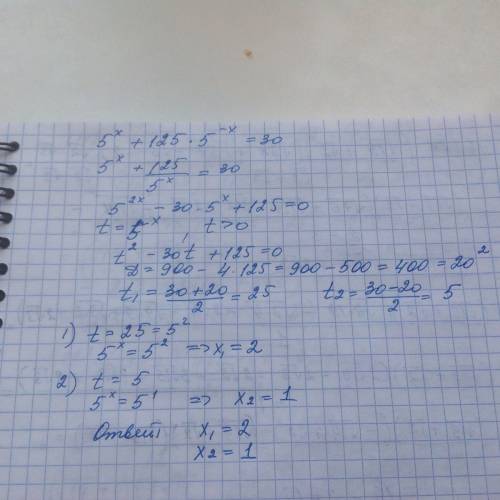 5^x + 125 · 5^{-x} = 30
5^x + \frac{125}{5^x} = 30
5^{2x} - 30 · 5^x + 125 = 0
t = 5^x, t > 0
t^2 - 30t + 125 = 0
D = 900 - 4 · 125 = 900 - 500 = 400 = 20^2
t_1 = \frac{30+20}{2} = 25 t_2 = \frac{30-20}{2} = 5
1) t = 25 = 5^2
5^x = 5^2 => x_1 = 2
2) t = 5
5^x = 5^1 => x_2 = 1
Ответ: x_1 = 2
x_2 = 1